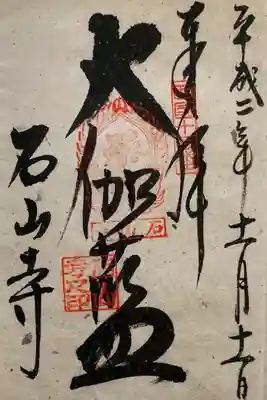 平成二年十一月十一日
奉拝
大伽藍
石山寺